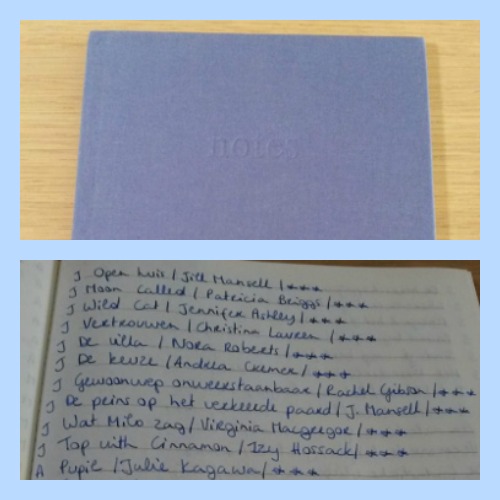 notes
J Open huis / Jill Mansell / ***
J Moon Called / Patricia Briggs / ***
J Wild Cat / Jennifer Ashley / ***
J Vertrouwen / Christina Lauren / ***
J De villa / Nora Roberts / ***
J De keuze / Andrea Cremer / ***
J Gewoonweg onweerstaanbaar / Rachel Gibson / ***
J De prins op het verkeerde paard / J. Mansell / ***
J Wat Milo zag / Virginia Macgregor / ***
J Top with Cinnamon / Izy Hossack / ***
A Pupil / Julie Kagawa / ***